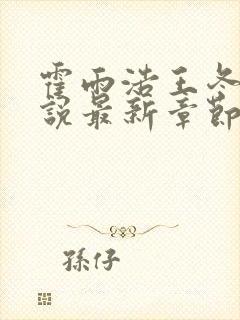 霍雨浩王冬
說最新章節
孫仔